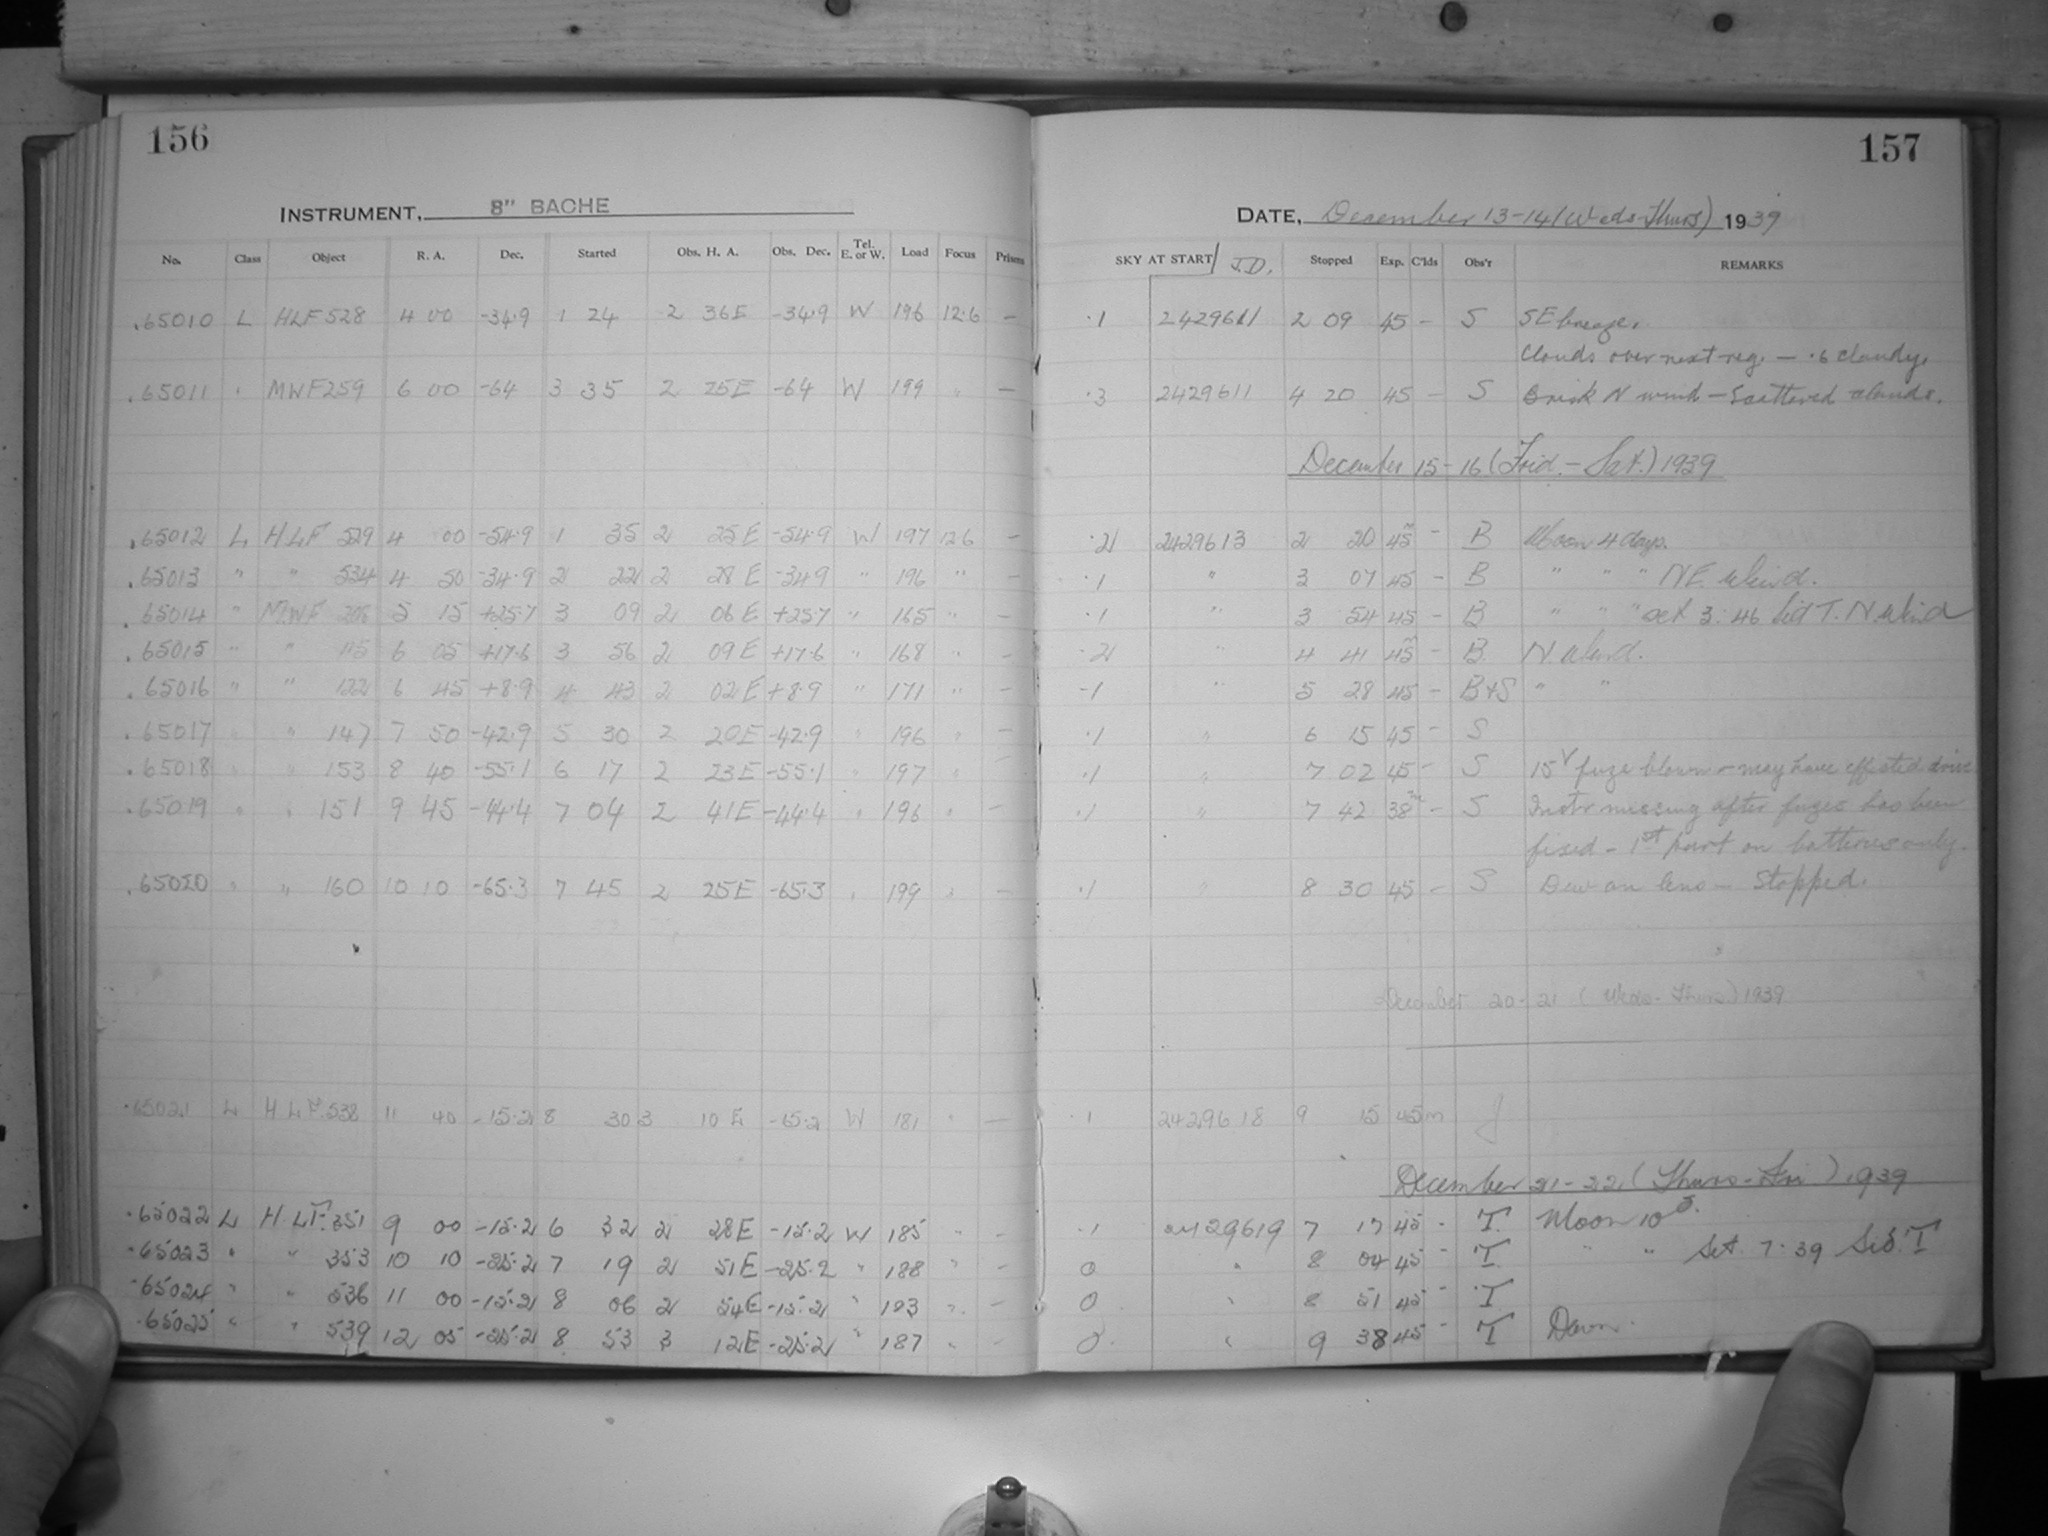 156
157
INSTRUMENT, 8" BACHE
DATE, December 13-14 (Weds-Thurs) 1939
No. Class Object R. A. Dec. Started Obs. H. A. Obs. Dec. Tel. E. or W. Load Focus Prisms SKY AT START / J.D. Stopped Exp. C'lds Obs'r REMARKS
.65010 L HLF 528 4 00 -34.9 1 24 2 36E -34.9 W 196 12.6 - .1 2429611 2 09 45 - S SE breeze.
Clouds over next reg. - .6 cloudy.
.65011 " MWF 259 6 00 -64 3 35 2 25E -64 W 199 " - .3 2429611 4 20 45 - S Brisk N wind - Scattered clouds.
December 15-16 (Frid.-Sat.) 1939
.65012 L HLF 529 4 00 -54.9 1 35 2 25E -54.9 W 197 12.6 - .2 2429613 2 20 45 - B Moon 4 days.
.65013 " " 534 4 50 -34.9 2 22 2 28E -34.9 " 196 " - .1 " 3 07 45 - B " " " NE. Wind.
.65014 " MWF 5 15 +25.7 3 09 2 06E +25.7 " 165 " - .1 " 3 54 45 - B " " " set 3:46 Sid T. N. Wind
.65015 " " 115 6 05 +17.6 3 56 2 09E +17.6 " 168 " - .2 " 4 41 45 - B. N. Wind.
.65016 " " 122 6 45 +8.9 4 43 2 02E +8.9 " 171 " - .1 " 5 28 45 - B+S " "
.65017 " " 147 7 50 -42.9 5 30 2 20E -42.9 " 196 " - .1 " 6 15 45 - S
.65018 " " 153 8 40 -55.1 6 17 2 23E -55.1 " 197 " - .1 " 7 02 45 - S 15V fuze blown - may have effected drive
.65019 " " 151 9 45 -44.4 7 04 2 41E -44.4 " 196 " - .1 " 7 42 38m - S Instr missing after fuzes has been
fixed - 1st part on batteries only.
.65020 " " 160 10 10 -65.3 7 45 2 25E -65.3 " 199 " - .1 " 8 30 45 - S Dew on lens - Stopped.
December 20-21 (Weds-Thurs) 1939
.65021 L HLF 538 11 40 -15.2 8 30 3 10E -15.2 W 181 " - .1 2429618 9 15 45m J
December 21-22 (Thurs-Fri) 1939
.65022 L HLF. 351 9 00 -15.2 6 32 2 28E -15.2 W 185 " - .1 2429619 7 17 45 - T. Moon 10 d.
.65023 " " 353 10 10 -25.2 7 19 2 51E -25.2 " 188 " - 0 " 8 04 45 - T. " " Set. 7:39 Sid. T
.65024 " " 536 11 00 -15.2 8 06 2 54E -15.2 " 183 " - 0 " 8 51 45 - T
.65025 " " 539 12 05 -25.2 8 53 3 12E -25.2 " 187 " - 0 " 9 38 45 - T Dawn.